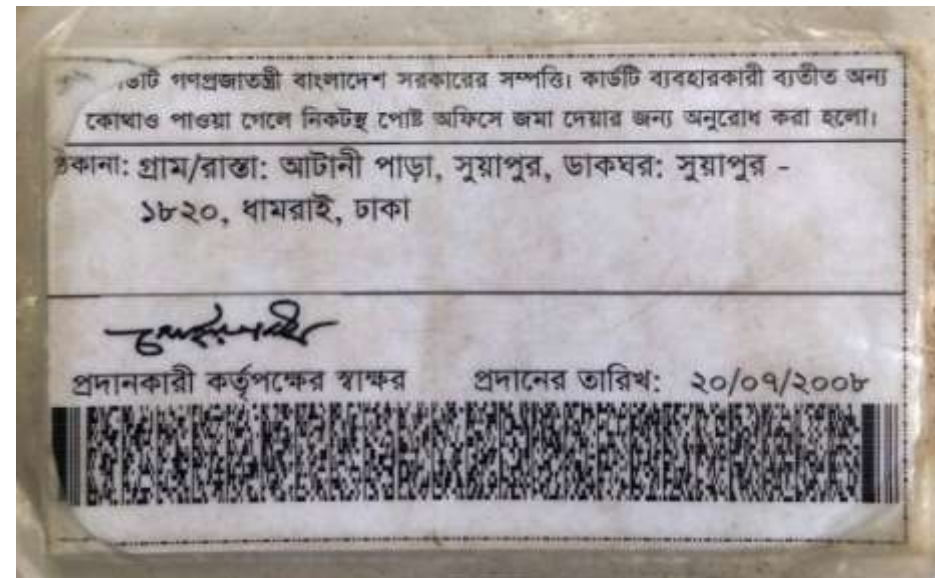 গণপ্রজাতন্ত্রী বাংলাদেশ সরকারের সম্পত্তি। কার্ডটি ব্যবহারকারী ব্যতীত অন্য
কোথাও পাওয়া গেলে নিকটস্থ পোষ্ট অফিসে জমা দেয়ার জন্য অনুরোধ করা হলো।
ঠিকানা: গ্রাম/রাস্তা: আটানী পাড়া, সুয়াপুর, ডাকঘর: সুয়াপুর -
১৮২০, ধামরাই, ঢাকা
প্রদানকারী কর্তৃপক্ষের স্বাক্ষর প্রদানের তারিখ: ২০/০৭/২০০৮